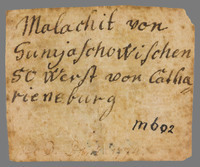 Malachit von
Gumjaschowischen
50 Werst von Catha
rieneburg
m602